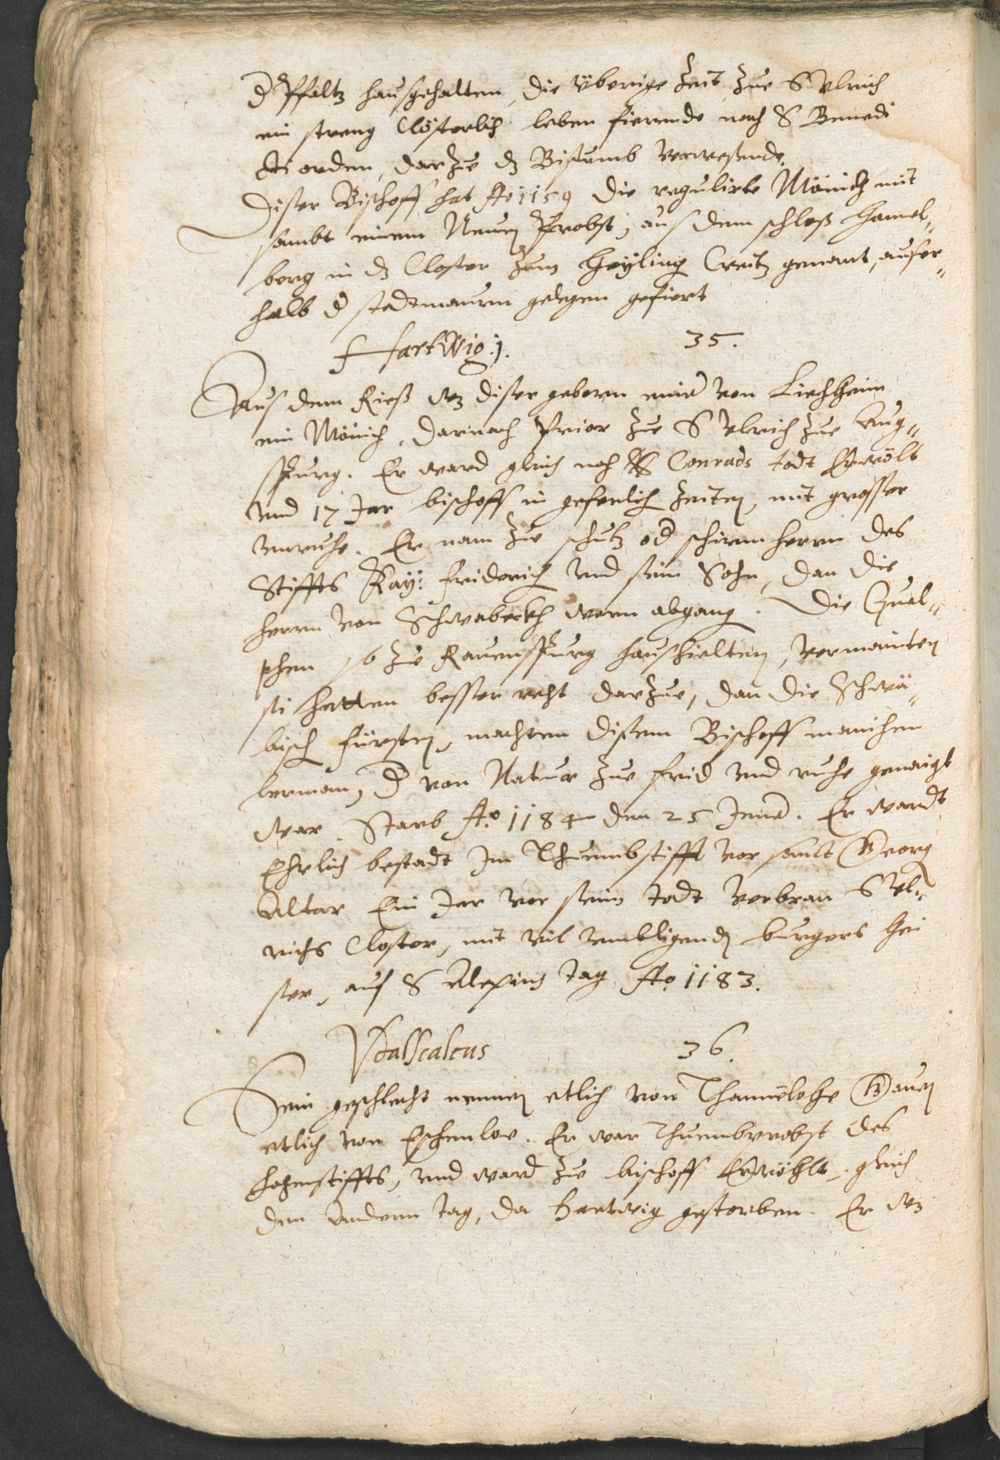 d Pfaltz hausgehalten, die überige Zeit zue S Ulrich
ein streng Clösterlich leben fierende nach S Benedi
cti orden, darzue dz Bistumb verwesende.
Diser Bischoff hat Ao 1159 die regulirte Mönich mit
sambt einem Neuen Probst, aus dem schloß Hamel„
berg in dz Closter zum Heyling Creitz genant, auser„
halb d stadtmauren gelegen gefiert
Hartwig j. 35.
Aus dem Rieß wz diser geborn einer von Liechheim
ein Mönich, darnach Prior zue S Ulrich zue Aug„
spurg. Er ward gleich nach Conrads todt Erwölt
und 17 Jar bischoff in geferlich zeiten, mit grosser
unruhe. Er nam zue schutz od schirm herrn des
Stiffts Kay: Friderich und sein Sohn, dan die
herrn von Schwabeckh warn abgang. Die Guel„
phen so zue Ravenspurg haushielten, vermainten
sie hetten besser recht darzue, dan die Schwä„
bisch Fürsten, machten disem Bischoff manichen
lerman, d von Natur zue frid und ruhe genaigt
war. Starb Ao 1184 den 25 Jener. Er wardt
Ehrlich bestadt Im Thuembstifft vor sanct Georg
Altar Ein Jar vor seim todt verbran S Ul„
richs Closter, mit vil umbligenden burgers hei
ser, auf S Alexius tag Ao 1183.
Vdalscalcus 36.
Sein geschlecht nennen etlich von Thannelohe
etlich von Eschenloe. Er war Thuembprobst des
hohenstiffts, und ward zue bischoff Erwöhlt, gleich
den andern tag, da Hartwig gestorben. Er wz